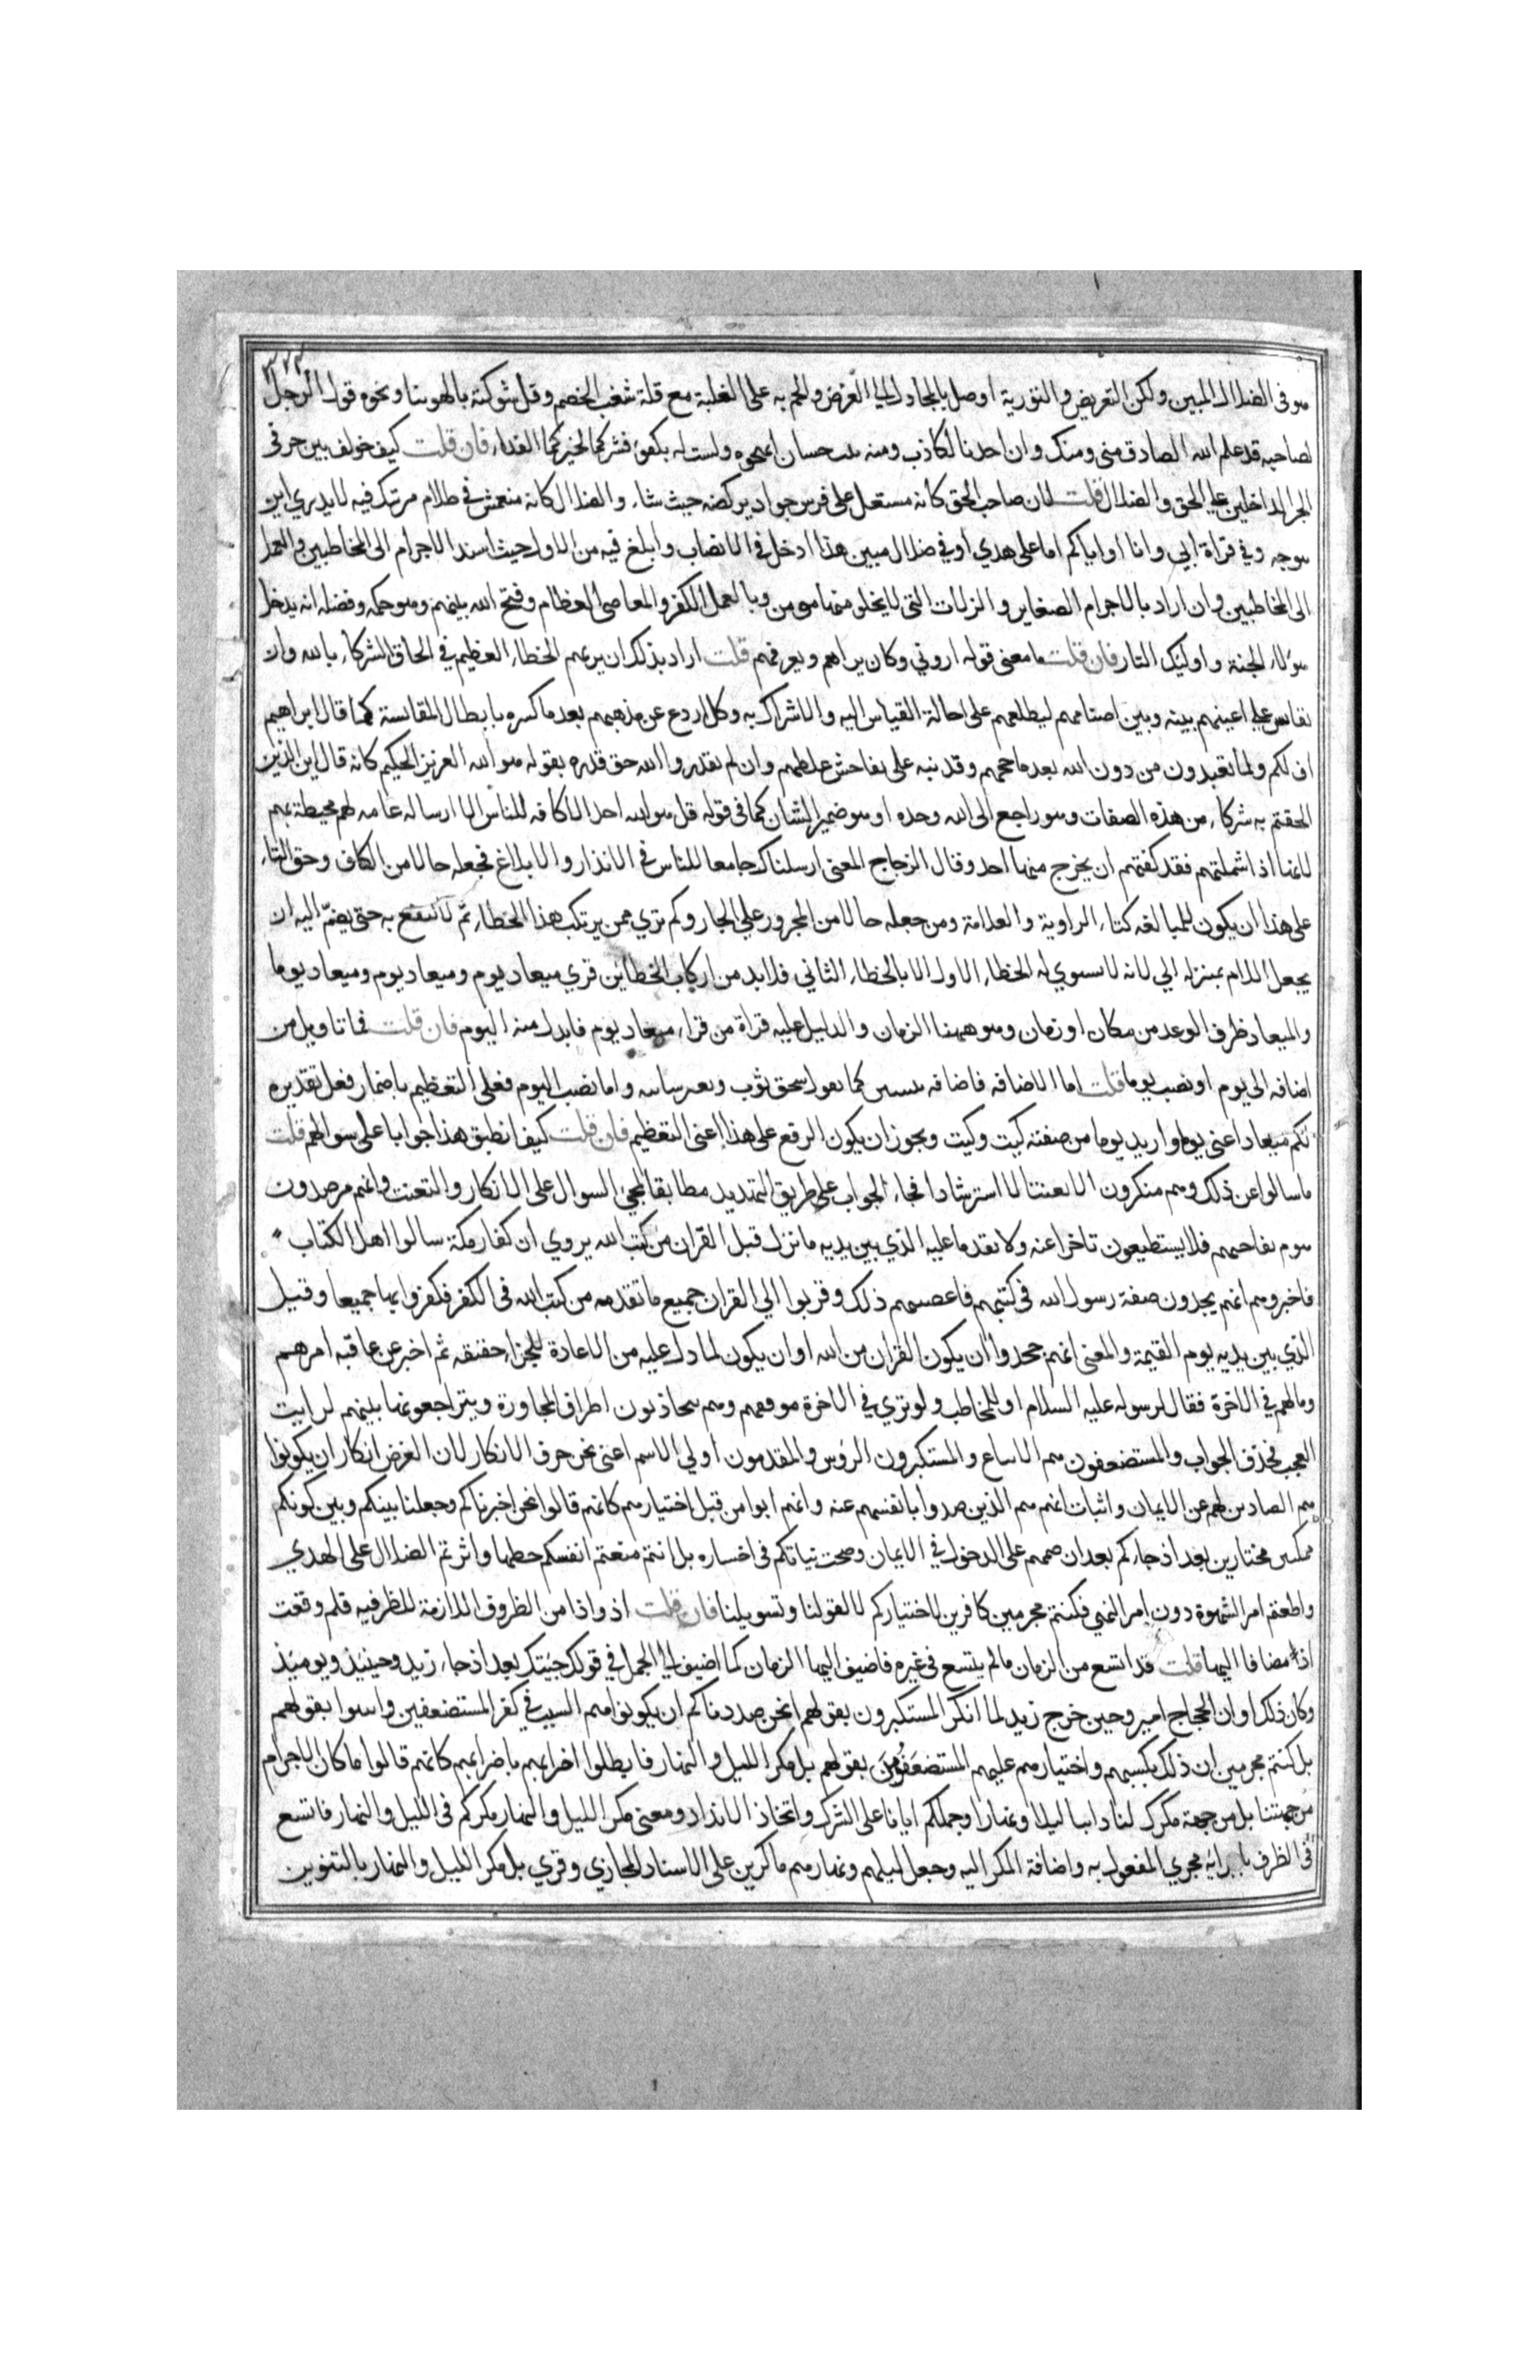 ٣٢٣
هو فى الضلال المبين ولكن التعريض والتورية اوصل بالمجادل الى الغرض والحم به على الغلبة مع قلة شغب الخصم وقل شوكته بالهوينا ونحوه قول الرجل
لصاحبه قد علم الله الصادق منى ومنك وان احدنا لكاذب ومنه بيت حسان اتهجوه ولست له بكفؤ فشركما لخيركما الفداء فان قلت كيف خولف بين حرفى
الجر الداخلين على الحق والضلال قلت لان صاحب الحق كانه مستعل على فرس جواد يركضه حيث شاء والضال كانه منغمس فى ظلام مرتبك فيه لا يدري اين
توجه وفي قراة ابي وانا او اياكم اما على هدي او في ضلال مبين هذا ادخل في الانصاف وابلغ فيه من الاول حيث اسند الاجرام الى المخاطبين والعمل
الى المخاطبين وان اراد بالاجرام الصغاير والزلات التى لا يخلو منها مومن وبالعمل الكفر والمعاصى العظام وفتح الله بينهم وهو حكمه وفضله انه يدخل
هؤلاء الجنة واوليك النار فان قلت ما معنى قوله اروني وكان يراهم ويعرفهم قلت اراد بذلك ان يريهم الخطاء العظيم في الحاق الشركاء بالله وان
نقاس على اعينهم بينه وبين اصنامهم ليطلعهم على احالة القياس اليه والاشراك به وكلا ردع عن مذهبهم بعد ما كسره بابطال المقايسة كما قال ابراهيم
اف لكم ولما تعبدون من دون الله بعد ما حجهم وقد نبه على تفاحش غلطهم وان لم يقدروا الله حق قدره بقوله هو الله العزيز الحكيم كانه قال اين الذين
الحقتم به شركاء من هذه الصفات وهو راجع الى الله وحده او هو ضمير الشان كما فى قوله قل هو الله احد الا كافه للناس الا ارساله عامه لهم محيطة بهم
لانها اذا شملتهم فقد كفتهم ان يخرج منها احد وقال الزجاج المعنى ارسلناك جامعا للناس في الانذار والابلاغ فجعله حالا من الكاف وحق التاء
على هذا ان يكون للمبالغه كتاء الراوية والعلامة ومن جعله حالا من المجرور على الجار وكم تري ممن يرتكب هذا الخطاء ثم لا يقنع به حتى يضم اليه ان
يجعل اللام بمنزله الي لانه لا يستوي له الخطاء الاول الا بالخطاء الثاني فلا بد من ارتكاب الخطاين قري ميعاد يوم وميعاد يوم وميعاد يوما
والميعاد ظرف الوعد من مكان او زمان وهو ههنا الزمان والدليل عليه قراة من قراء ميعاد يوم فابدل منه اليوم فان قلت فما تاويل من
اضافه الى يوم او نصب يوما قلت اما الاضافه فاضافه تبيين كما تقول سحق ثوب وبعير سانيه واما نصب اليوم فعلى التعظيم باضمار فعل تقديره
لكم ميعاد اعنى يوما واريد يوما من صفته كيت وكيت ويجوز ان يكون الرفع على هذا اعنى التعظيم فان قلت كيف انطبق هذا جوابا على سوالهم قلت
ما سالوا عن ذلك وهم منكرون الا تعنتا لا استرشادا فجاء الجواب على طريق التهديد مطابقا لمجئ السوال على الانكار والتعنت وانهم مرصدون
ليوم يفاجيهم فلا يستطيعون تاخرا عنه ولا تقدما عليه الذي بين يديه ما نزل قبل القران من كتب الله يروي ان كفار مكة سالوا اهل الكتاب
فاخبروهم انهم يجدون صفة رسول الله فى كتبهم فاغضبهم ذلك وقربوا الي القران جميع ما تقدمه من كتب الله فى الكفر فكفروا بها جميعا وقيل
الذي بين يديه يوم القيمة والمعنى انهم جحدوا ان يكون القران من الله او ان يكون لما دل عليه من الاعادة للجزاء حقيقه ثم اخبر عن عاقبه امرهم
ومالهم في الاخرة فقال لرسوله عليه السلام او للمخاطب ولو تري في الاخرة موقفهم وهم يتجاذبون اطراف المحاورة ويتراجعونها بينهم لرايت
العجب فحذف الجواب والمستضعفون هم الاتباع والمستكبرون الرؤس والمقدمون اولي الاسم اعنى نحن حرف الانكار لان الغرض انكار ان يكونوا
هم الصادين لهم عن الايمان واثبات انهم هم الذين صدوا بانفسهم عنه وانهم اتوا من قبل اختيارهم كانهم قالوا انحن اجبرناكم وحلنا بينكم وبين كونكم
ممكنين مختارين بعد اذ جاءكم بعد ان صممم على الدخول في الايمان وصحت نياتكم فى اختياره بل انتم منعتم انفسكم حظها واثرتم الضلال على الهدي
واطعتم امر الشهوة دون امر النهي فكنتم مجرمين كافرين لاختياركم لا لقولنا وتسويلنا فان قلت اذ واذا من الظروف اللازمة للظرفيه فلم وقعت
اذ مضافا اليها قلت قد اتسع من الزمان ما لم يتسع فى غيره فاضيف اليها الزمان كما اضيف الى الجمل في قولك جيتك بعد اذ جاء زيد وحينيذ ويوميذ
وكان ذلك اوان الحجاج امير وحين خرج زيد لما انكر المستكبرون بقولهم انحن صددناكم ان يكونوا هم السبب في كفر المستضعفين واثبتوا بقولهم
بل كنتم مجرمين ان ذلك بكسبهم واختيارهم عليهم المستضعفون بقولهم بل مكر الليل والنهار فابطلوا اضرابهم باضرابهم كانهم قالوا ما كان الاجرام
من جهتنا بل من جهة مكرك لنا دايبا ليلا ونهارا وحملكم ايانا على الشرك واتخاذ الانداد ومعنى مكر الليل والنهار مكركم فى الليل والنهار فاتسع
فى الظرف باجرايه مجري المفعول به واضافة المكر اليه وجعل ليلهم ونهارهم ماكرين على الاسناد المجازي وقري بل مكر الليل والنهار بالتنوين